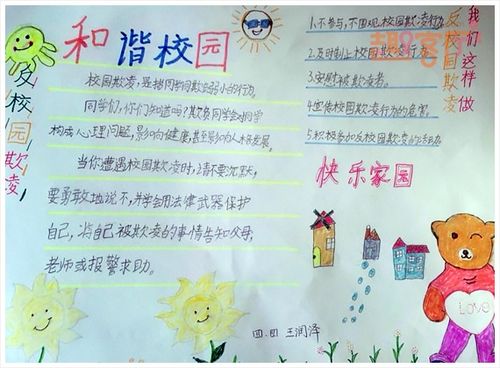 和谐校园
反校园欺凌
校园欺凌,是指同学间欺负弱小的行为。
同学们,你们知道吗?欺负同学会对同学
构成心理问题,影响健康,甚至影响人格发展。
当你遭遇校园欺凌时,请不要沉默,
要勇敢地说不,并学会用法律武器保护
自己,将自己被欺凌的事情告知父母,
老师或报警求助。
反校园欺凌
我们这样做
1.不参与,不围观校园欺凌行为。
2.及时制止校园欺凌行为。
3.安慰被欺凌者。
4.宣传校园欺凌行为的危害。
5.积极参加反校园欺凌的活动。
快乐家园
LOVE
四.四 王润泽